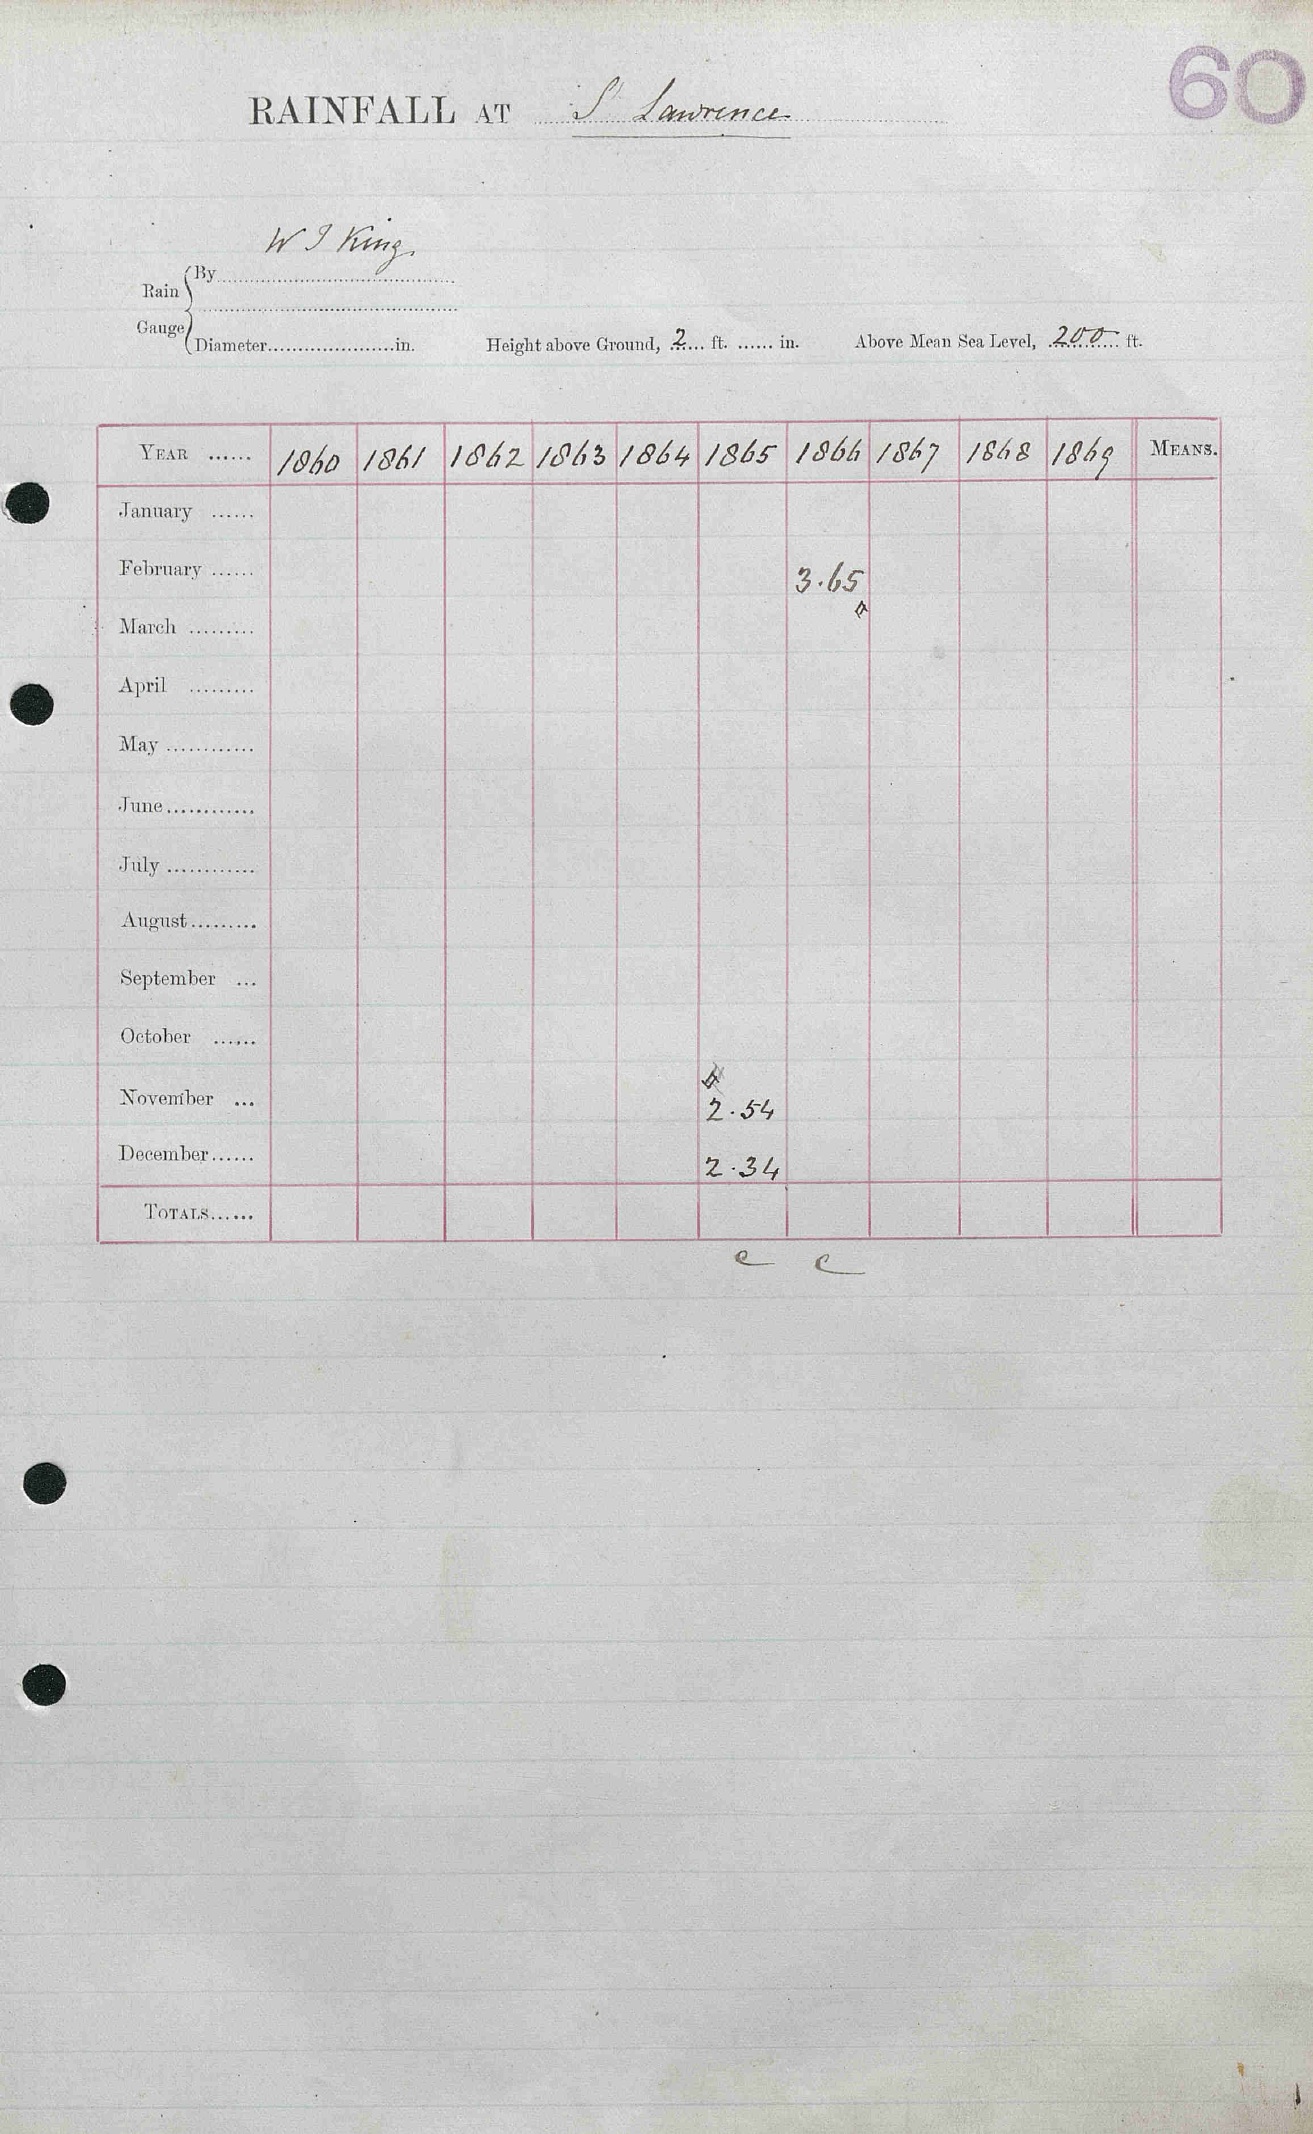 60
RAINFALL AT St Lawrence
W J King
Rain Gauge { By
Diameter in. Height above Ground, 2 ft. in. Above Mean Sea Level, 200 ft.
YEAR 1860 1861 1862 1863 1864 1865 1866 1867 1868 1869 MEANS.
January
February 3.65
March
April
May
June
July
August
September
October
November 2.54
December 2.34
TOTALS
c c